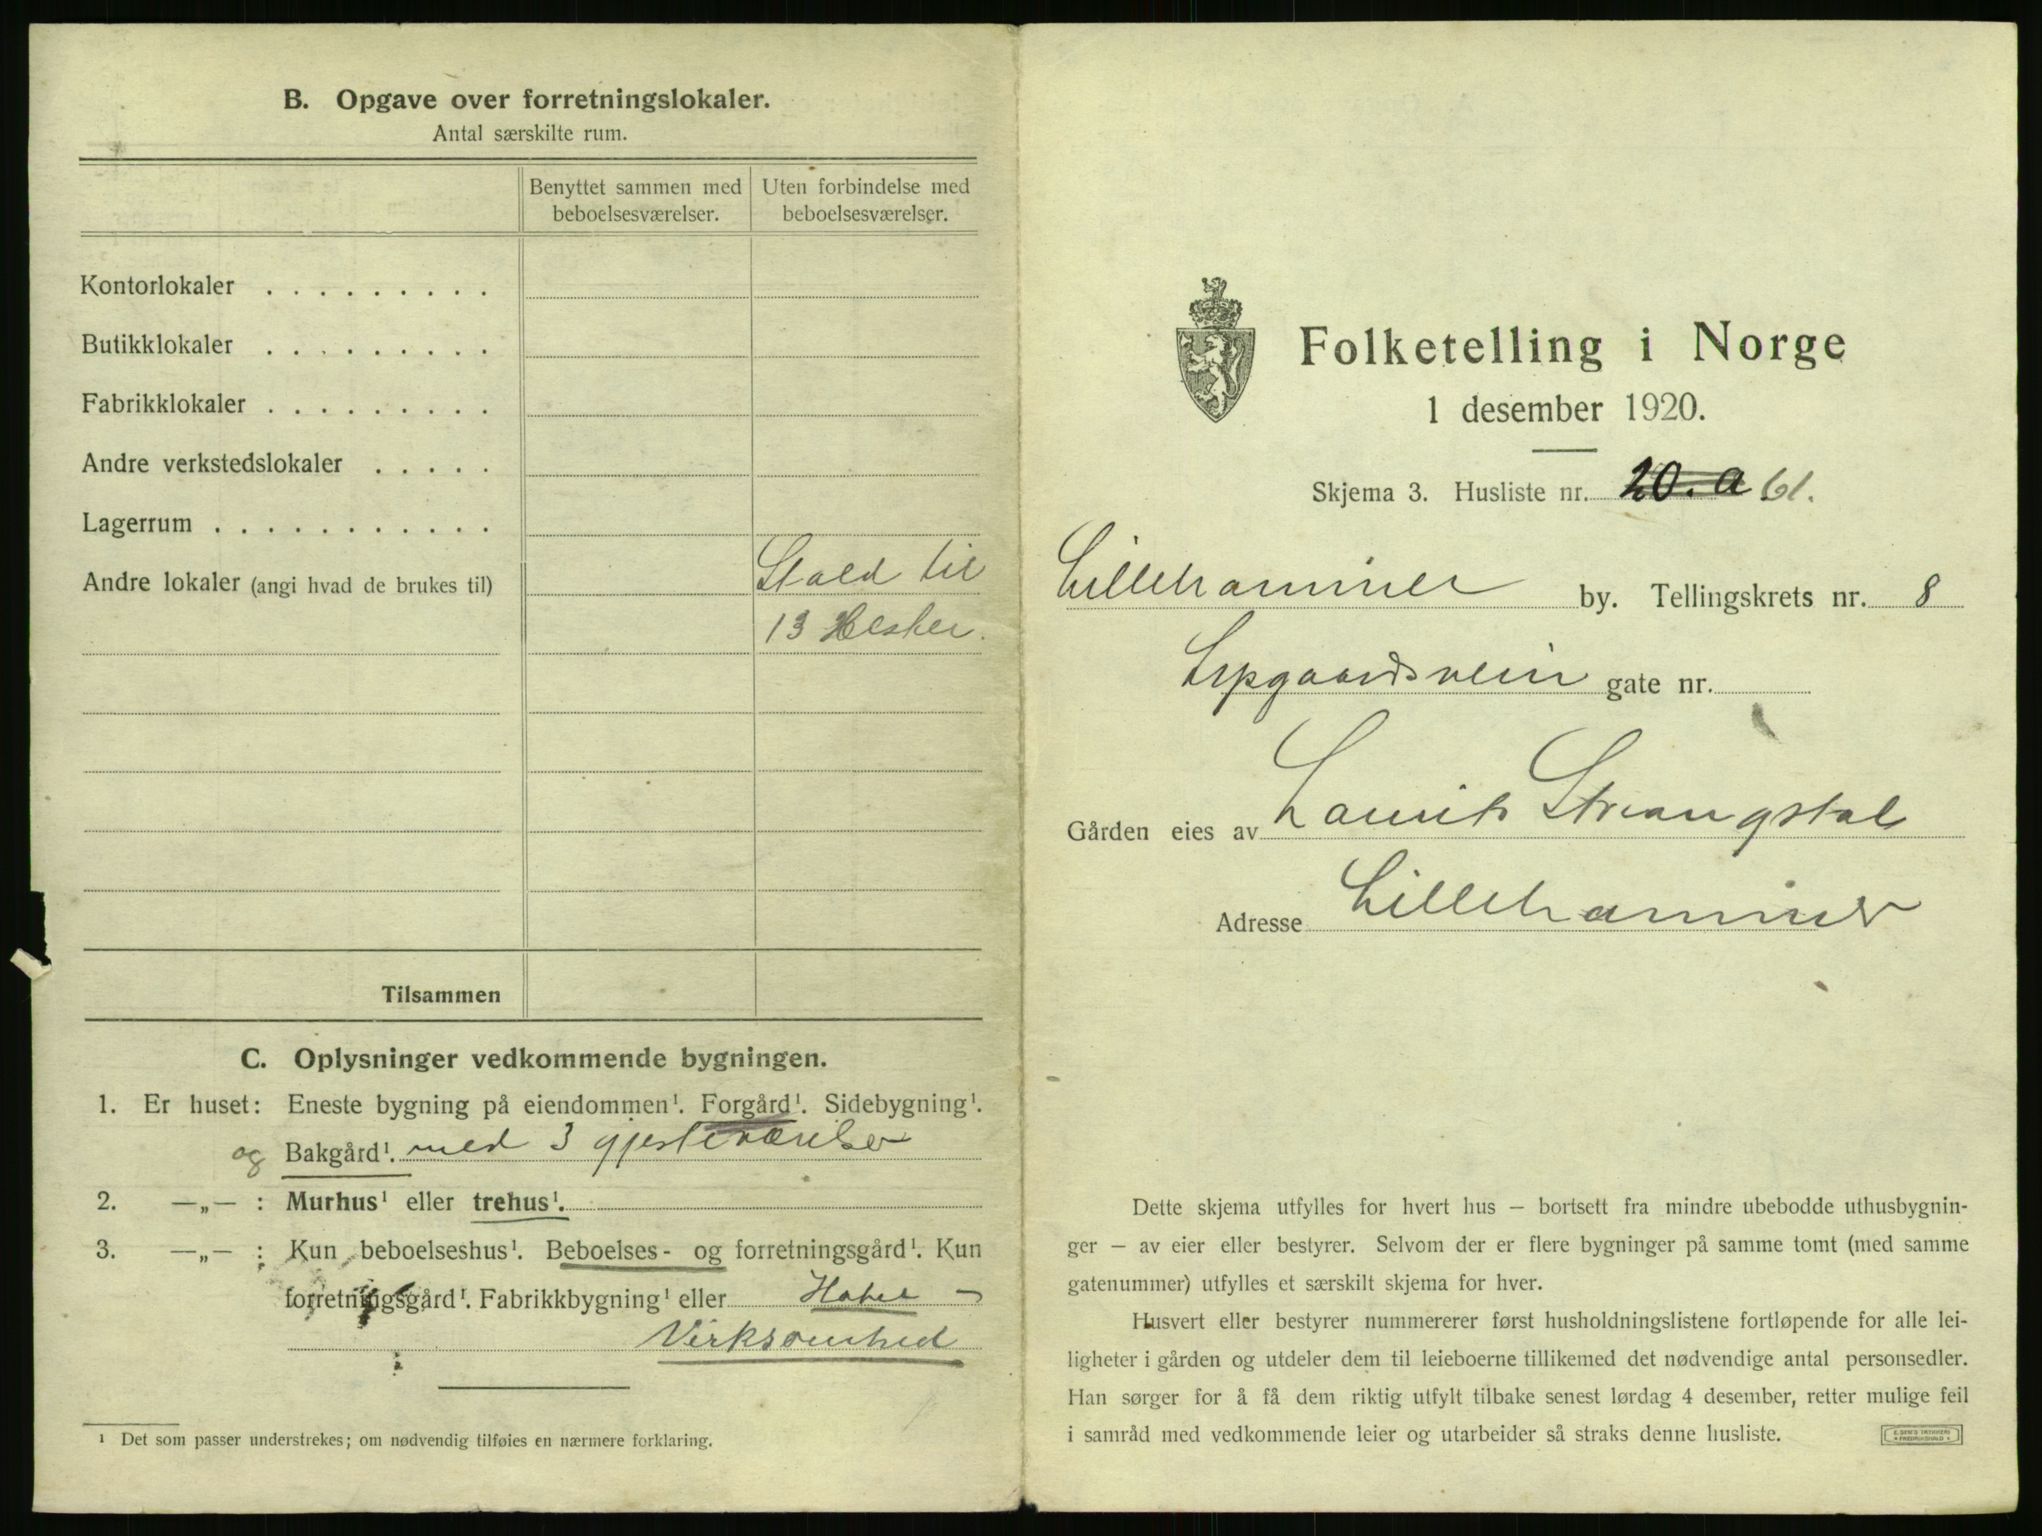 B. Opgave over forretningslokaler.
Antal særskilte rum.
Benyttet sammen med beboelsesværelser.
Uten forbindelse med beboelsesværelser.
Kontorlokaler . . . . . . . . .
Butikklokaler . . . . . . . . .
Fabrikklokaler . . . . . . . . .
Andre verkstedslokaler . . . . .
Lagerrum . . . . . . . . . . .
Andre lokaler (angi hvad de brukes til) Stald til
13 Hester.
Tilsammen
C. Oplysninger vedkommende bygningen.
1. Er huset: Eneste bygning på eiendommen¹. Forgård¹. Sidebygning¹.
og Bakgård¹. med 3 gjesteværelser
2. —„— : Murhus¹ eller trehus¹.
3. —„— : Kun beboelseshus¹. Beboelses- og forretningsgård¹. Kun
forretningsgård¹. Fabrikkbygning¹ eller Hotel -
Virksomhed
¹ Det som passer understrekes; om nødvendig tilføies en nærmere forklaring.
Folketelling i Norge
1 desember 1920.
Skjema 3. Husliste nr. 20. a 61.
Lillehammer by. Tellingskrets nr. 8
gate nr.
Gården eies av Laurits Strangstal
Adresse Lillehammer
Dette skjema utfylles for hvert hus — bortsett fra mindre ubebodde uthusbygnin-
ger — av eier eller bestyrer. Selvom der er flere bygninger på samme tomt (med samme
gatenummer) utfylles et særskilt skjema for hver.
Husvert eller bestyrer nummererer først husholdningslistene fortløpende for alle lei-
ligheter i gården og utdeler dem til leieboerne tillikemed det nødvendige antal personsedler.
Han sørger for å få dem riktig utfylt tilbake senest lørdag 4 desember, retter mulige feil
i samråd med vedkommende leier og utarbeider så straks denne husliste.